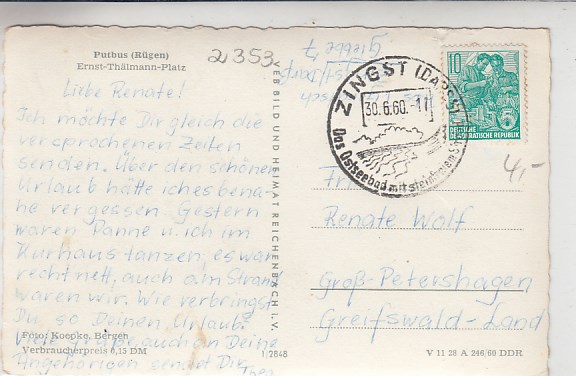 Putbus (Rügen)
Ernst-Thälmann-Platz
2353
Liebe Renate!
Ich möchte Dir gleich die
versprochenen Zeilen
senden. Über den schönen
Urlaub hätte ich es bena-
he vergessen. Gestern
waren Hanne u. ich im
Kurhaus tanzen, es war
recht nett, auch am Strand
waren wir. Wie verbringst
Du so Deinen Urlaub?
Viele Grüße auch an Deine
Angehörigen sendet Dir
Foto: Koepke, Bergen
Verbraucherpreis 0,15 DM
1/2848
VEB BILD UND HEIMAT REICHENBACH I. V.
ZINGST (DARSS)
30.6.60.-11
Das Ostseebad mit steinfreiem
10
DEUTSCHE
DEMOKRATISCHE REPUBLIK
4,-
Renate Wolf
Groß-Petershagen
Greifswald-Land
V 11 28 A 246/60 DDR